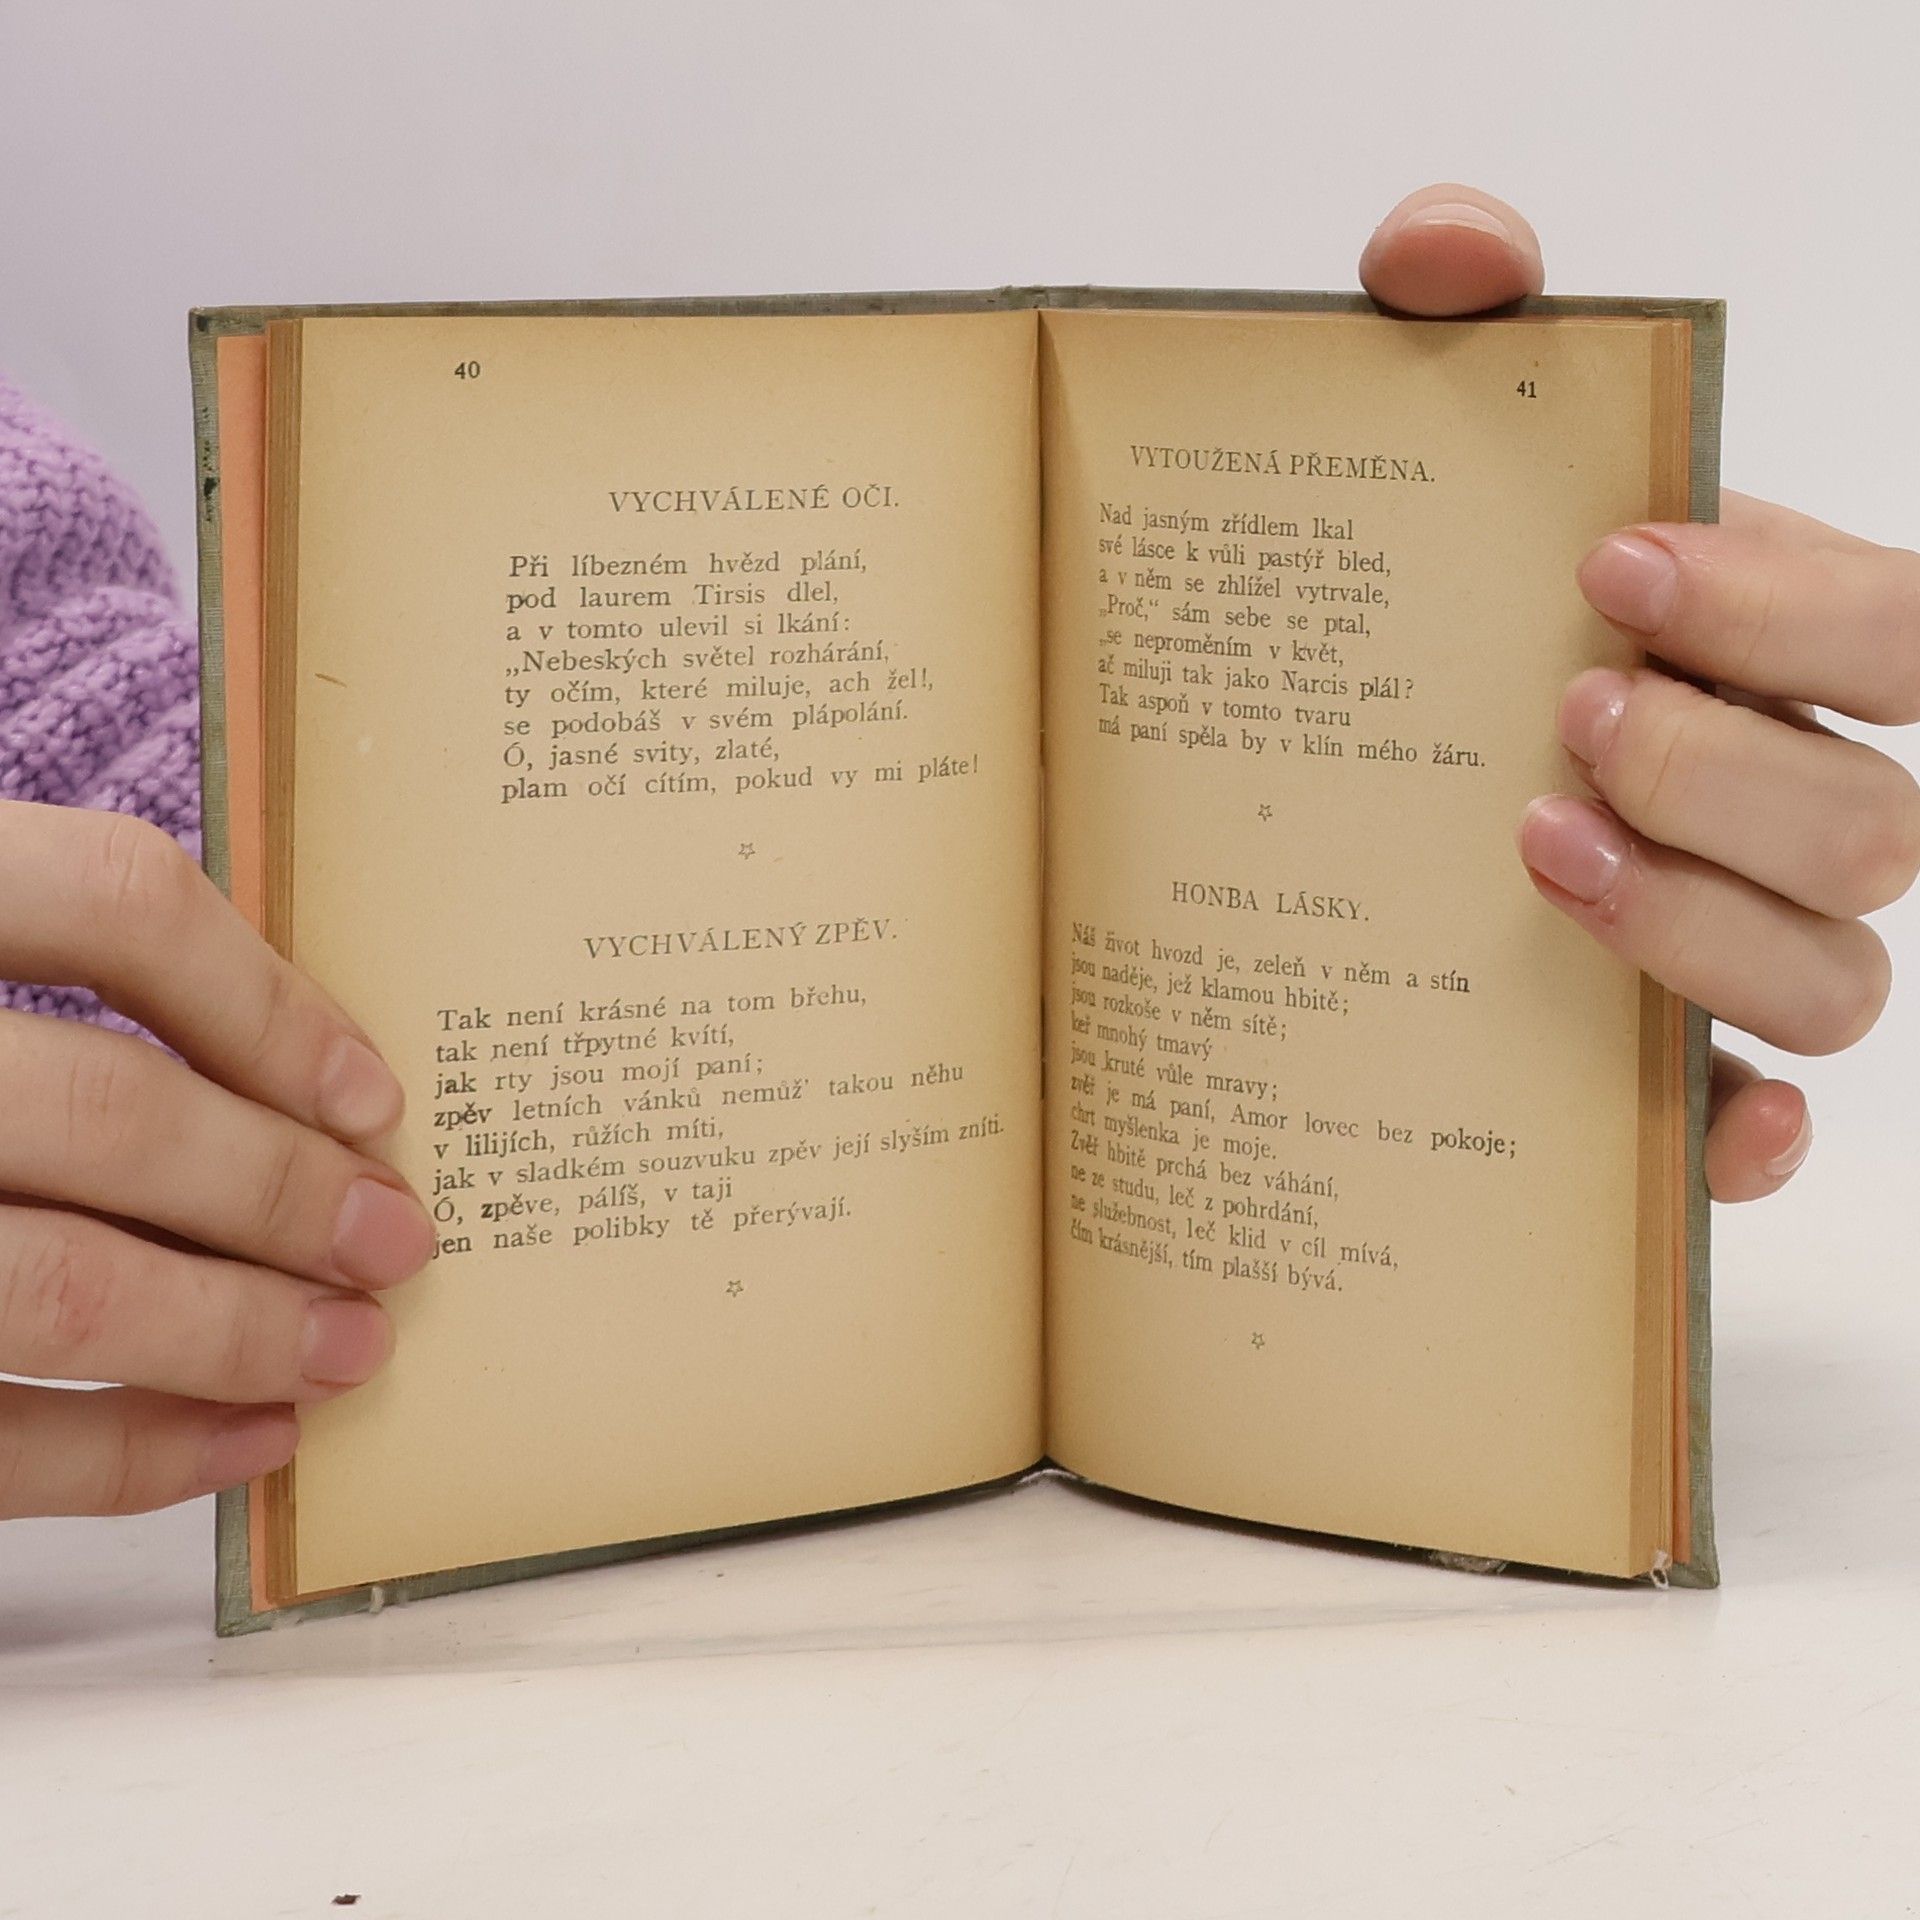 40
VYCHVÁLENÉ OČI.
Při líbezném hvězd plání,
pod laurem Tirsis dlel,
a v tomto ulevil si lkání:
„Nebeských světel rozhárání,
ty očím, které miluje, ach žel!,
se podobáš v svém plápolání.
Ó, jasné svity, zlaté,
plam očí cítím, pokud vy mi pláte!
VYCHVÁLENÝ ZPĚV.
Tak není krásné na tom břehu,
tak není třpytné kvítí,
jak rty jsou mojí paní;
zpěv letních vánků nemůž' takou něhu
v lilijích, růžích míti,
jak v sladkém souzvuku zpěv její slyším zníti.
Ó, zpěve, pálíš, v taji
jen naše polibky tě přerývají.
41
VYTOUŽENÁ PŘEMĚNA.
Nad jasným zřídlem lkal
své lásce k vůli pastýř bled,
a v něm se zhlížel vytrvale,
„Proč,“ sám sebe se ptal,
„se neproměním v květ,
ač miluji tak jako Narcis plál?
Tak aspoň v tomto tvaru
má paní spěla by v klín mého žáru.
HONBA LÁSKY.
Náš život hvozd je, zeleň v něm a stín
jsou naděje, jež klamou hbitě;
jsou rozkoše v něm sítě;
keř mnohý tmavý
jsou kruté vůle mravy;
zvěř je má paní, Amor lovec bez pokoje;
chrt myšlenka je moje.
Zvěř hbitě prchá bez váhání,
ne ze studu, leč z pohrdání,
ne služebnost, leč klid v cíl mívá,
čím krásnější, tím plašší bývá.